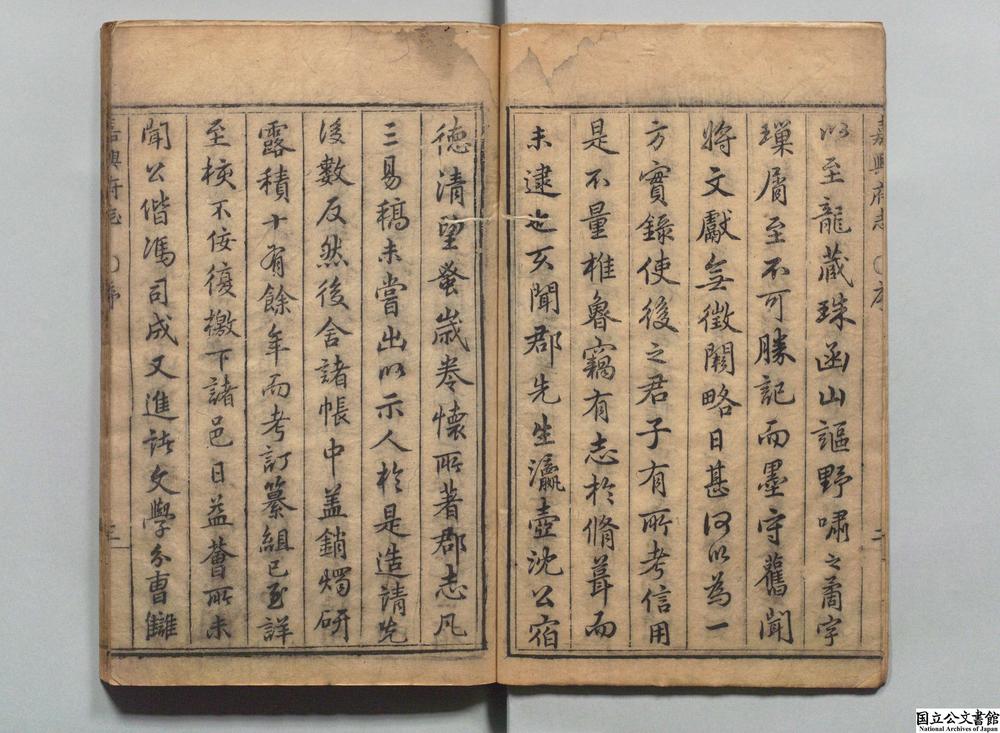 嘉興府志
序
二
以至龍藏珠函山謳野嘯之裔字
璅屑至不可勝記而墨守舊聞
將文獻無徵闕略日甚何以為一
方實錄使後之君子有所考信用
是不量椎魯竊有志於脩葺而
未逮也亥聞郡先生瀛壺沈公宿
德清望蚤歲卷懷所著郡志凡
三易稿未嘗出以示人於是造請先
後數反然後舍諸帳中蓋銷燭研
露積十有餘年而考訂纂組已至詳
至核不佞復檄下諸邑日益薈所未
聞公偕馮司成又進諸文學分曹讎
嘉興府志
序
三
国立公文書館
National Archives of Japan